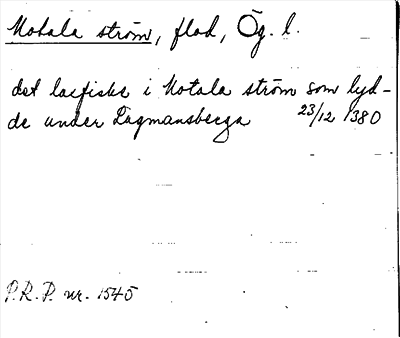 Motala ström, flod, Ög. l.
det laxfiske i Motala ström som lyd-
de under Lagmansberga 23/12 1380
P.R.P. nr. 1545